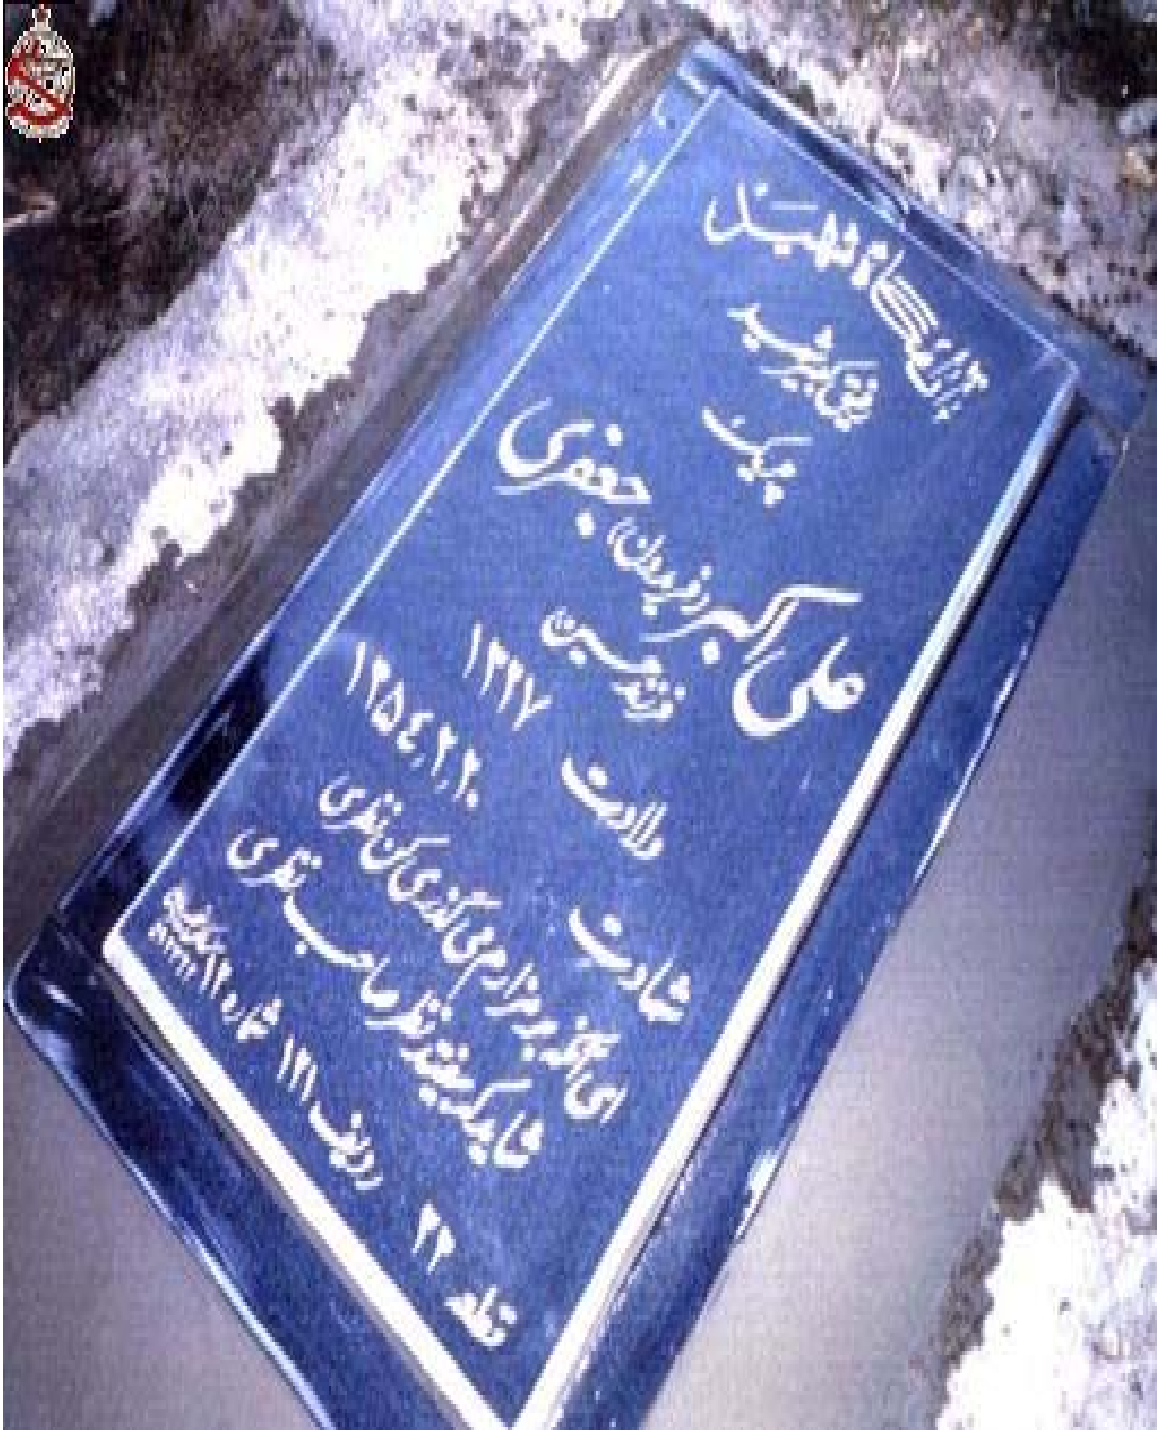 آرامگاه شهید
رفیق کبیر شهید
چریک
علی اکبر (فریدون) جعفری
فرزند حسین
ولادت ۱۳۲۷
شهادت ۱۳۵۴,۲,۲۰
ای آنکه بر مزارم می گذری کن نظری
شاید که بیفتد نظر صاحب نظری
قطعه ۳۳ ردیف ۱۲۱ شماره ۱۲